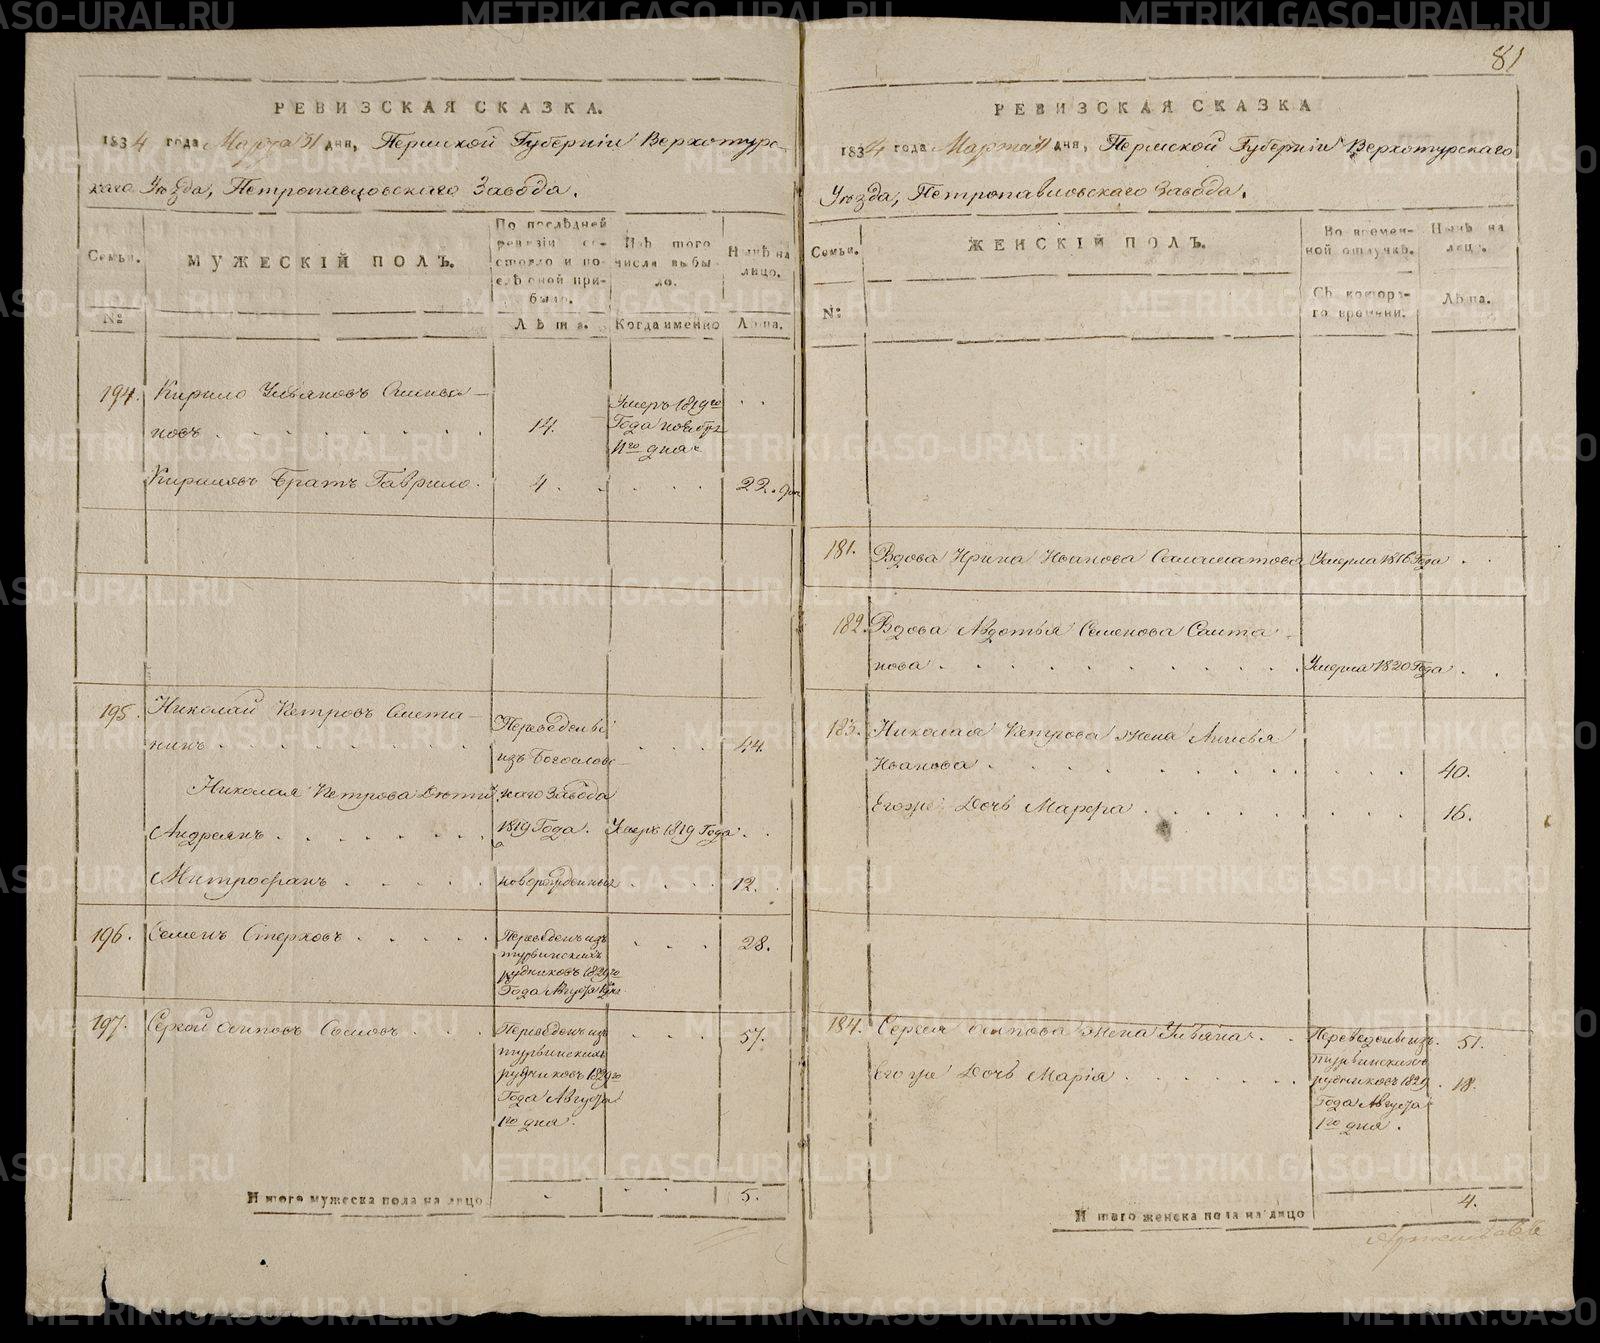 81
РЕВИЗСКАЯ СКАЗКА.
1834 года Марта 31 дня, Пермской Губерніи Верхотурс-
каго Уѣзда, Петропавловскаго Завода.
Семьи.
МУЖЕСКІЙ ПОЛЪ.
По послѣдней ревизіи состояло и послѣ оной прибыло.
Изъ того числа выбыло.
Нынѣ на лицо.
№
Лѣта.
Когда именно
Лѣта.
194. Кирило Ульяновъ
новъ 14. Умеръ 1819го
Года ноября
дня
Кириловъ Братъ Гаврило. 4. 22.
195. Николай Петровъ Смета-
нинъ 44.
Переведены
изъ Богословс-
Николая Петрова Дѣти каго Завода
Андреянъ 1819 Года. Умеръ 1819 Года
Митрофанъ новорожденный 12.
196. Семенъ Стерховъ Переведенъ изъ 28.
турьинскихъ
рудниковъ 1829го
Года Августа
197. Сергей Осиповъ Переведенъ изъ 57.
турьинскихъ
рудниковъ 1829го
Года Августа
1го дня.
Итого мужеска пола на лицо 5.
РЕВИЗСКАЯ СКАЗКА
1834 года Марта 31 дня, Пермской Губерніи Верхотурскаго
Уѣзда, Петропавловскаго Завода.
Семьи.
ЖЕНСКІЙ ПОЛЪ.
Во временной отлучкѣ.
Нынѣ на лицо.
№
Съ котораго времени.
Лѣта.
181. Вдова Ирина Иванова Саламатова Умерла 1816 Года
182. Вдова Авдотья Семенова
нова Умерла 1820 Года
183. Николая Петрова жена
Иванова 40.
Его же Дочь Марфа 16.
184. Сергея Осипова жена Ульяна Переведены изъ 51.
турьинскихъ
Его же Дочь Марія рудниковъ 1829 18.
Года Августа
1го дня.
Итого женска пола на лицо 4.
METRIKI.GASO-URAL.RU